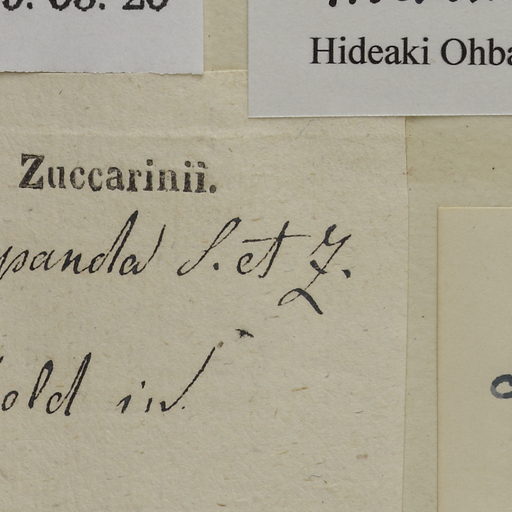 Hideaki Ohba
Zuccarinii.
panda S. et Z.
old in